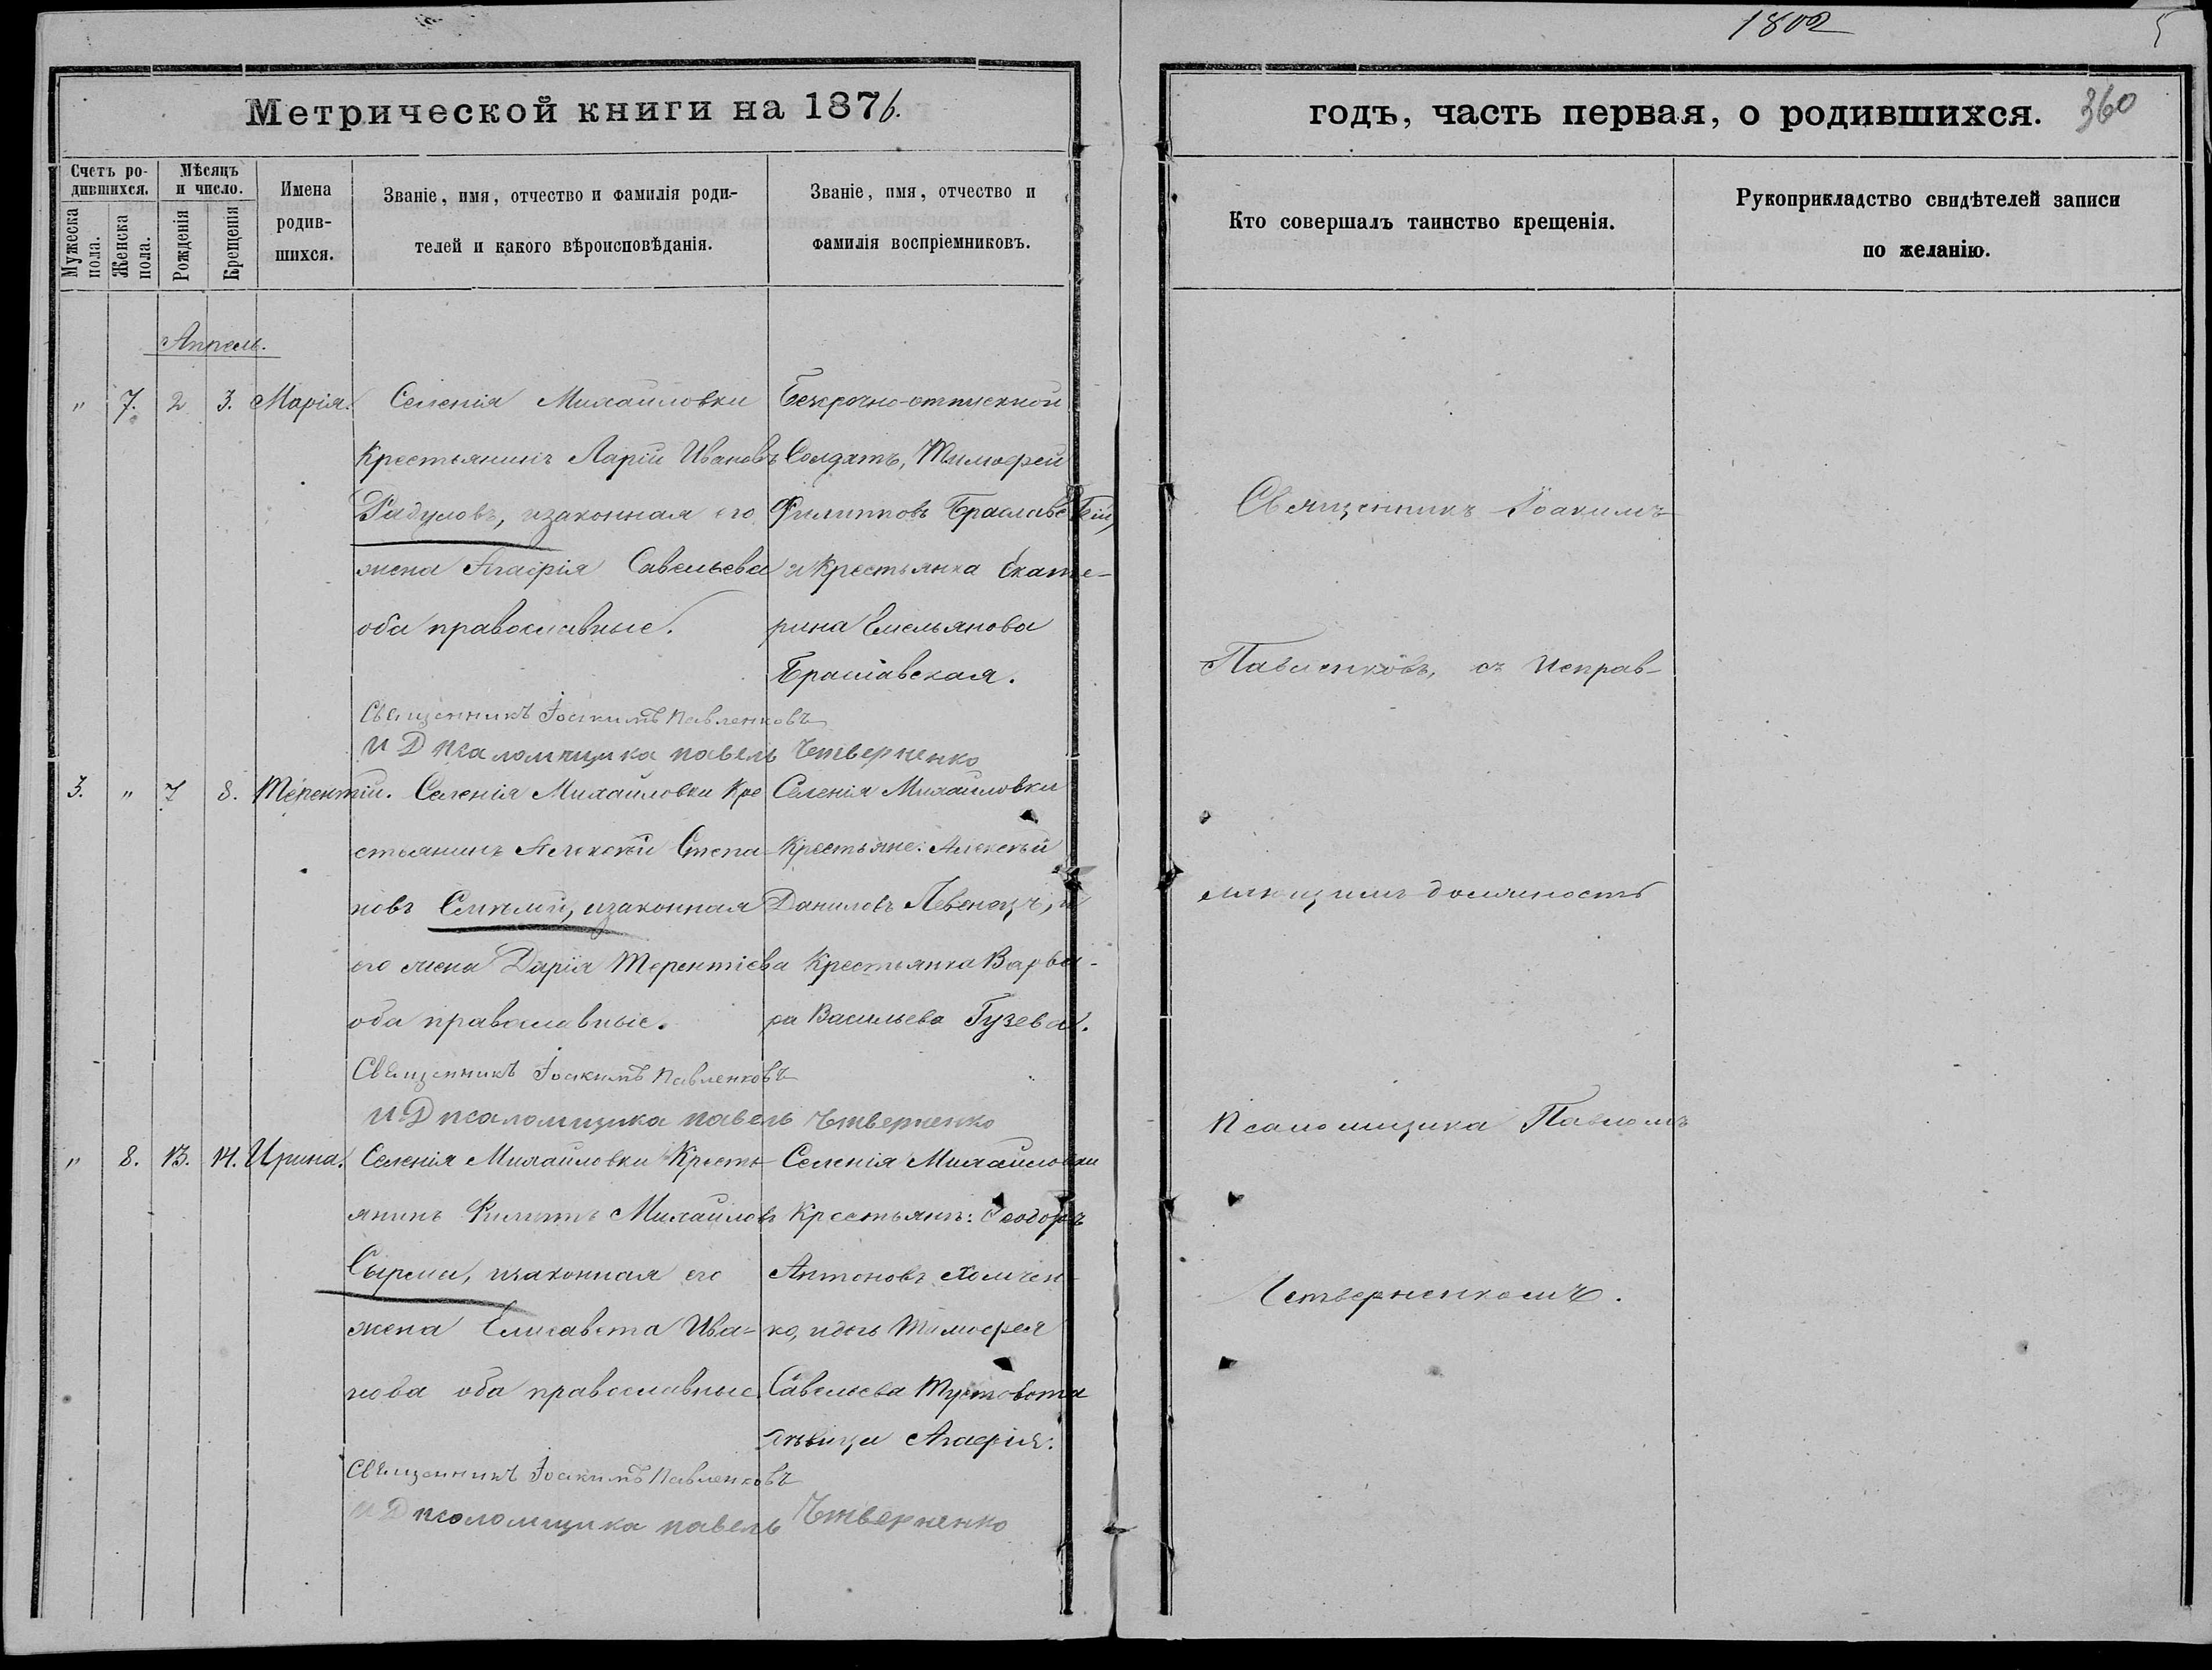 1802
5
Метрической книги на 1876.
годъ, часть первая, о родившихся.
360
Счетъ родившихся.
Мужеска пола.
Женска пола.
Мѣсяцъ и число.
Рожденія
Крещенія
Имена родившихся.
Званіе, имя, отчество и фамилія роди-
телей и какого вѣроисповѣданія.
Званіе, имя, отчество и
фамилія воспріемниковъ.
Кто совершалъ таинство крещенія.
Рукоприкладство свидѣтелей записи
по желанію.
Апрель.
" 7. 2 3. Марія.
Селенія Михайловки
Крестьянинъ Ларій Ивановъ
Радуловъ, изаконная его
жена Агафія Савельева
оба православные.
Безсрочно-отпускной
Солдатъ, Тимофей
Филипповъ Браславскій,
и Крестьянка Екате-
рина Емельянова
Браславская.
Священникъ Іоакимъ Павленковъ
И Д псаломщика павелъ Четверненко
3. " 7 8. Терентій.
Селенія Михайловки Кре
стьянинъ Алексѣй Степа-
новъ изаконная
его жена Дарія Терентіева
оба православные.
Селенія Михайловки
Крестьяне: Алексѣй
Даниловъ Левенецъ, и
Крестьянка Варва-
ра Васильева Гузева.
Священникъ Іоакимъ Павленковъ
И Д псаломщика павелъ Четверненко
" 8. 13. 14. Ирина.
Селенія Михайловки Кресть-
янинъ Филиппъ Михайловъ
Сырма, изаконная его
жена Елисавета Ива-
нова оба православные.
Селенія Михайловки
Крестьянъ: Ѳеодоръ
Антоновъ Хомчен-
ко, Тимофея
Савельева
дѣвица Агафія.
Священникъ Іоакимъ Павленковъ
И Д псаломщика павелъ Четверненко
Священникъ Іоакимъ
Павленковъ, съ исправ-
ляющимъ должность
Псаломщика Павломъ
Четверненкомъ.